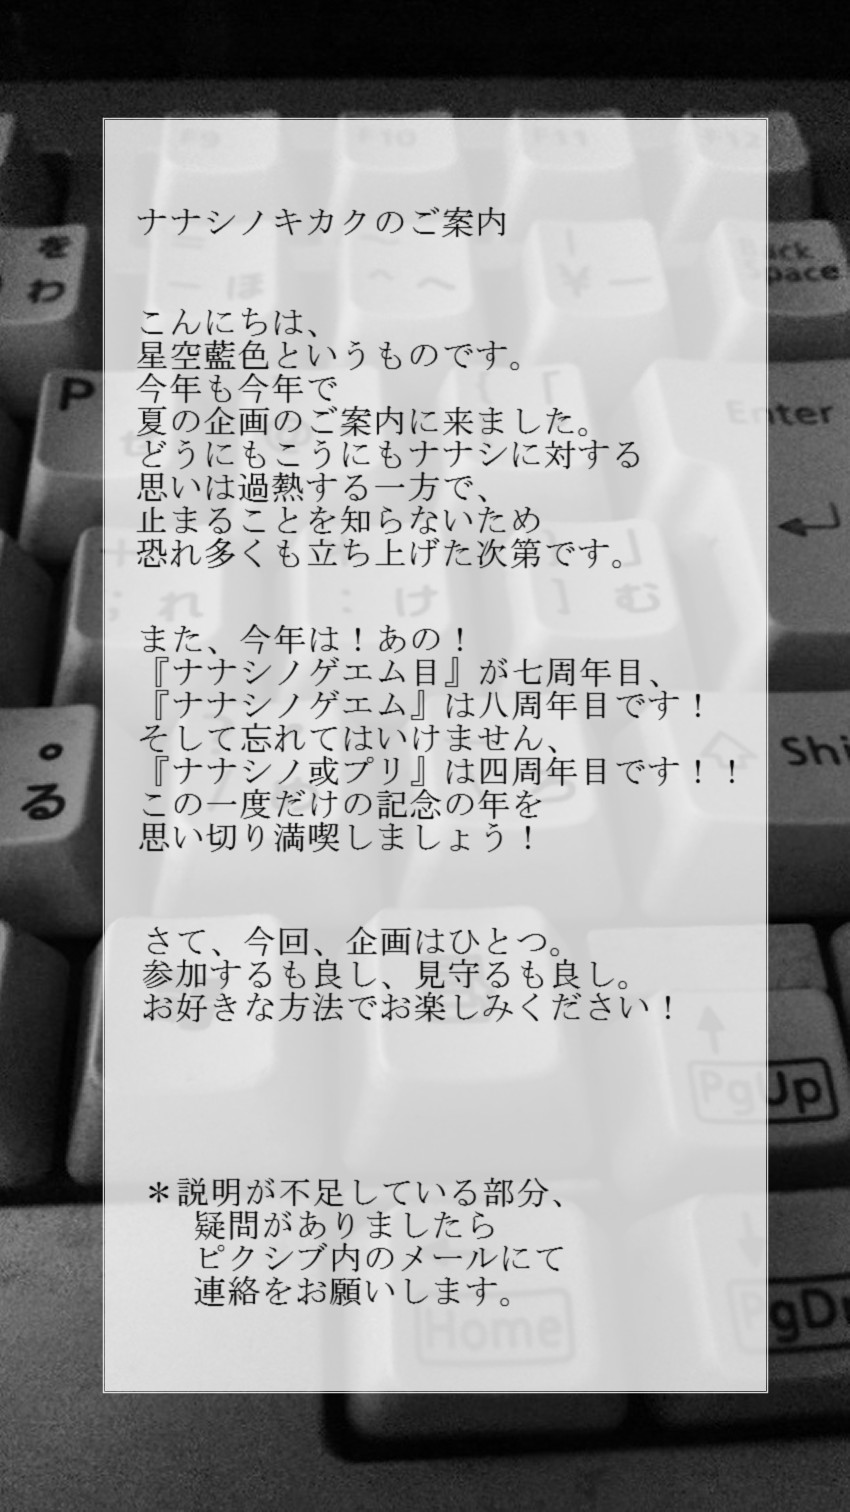 F9
F10
F11
F12
ナナシノキカクのご案内
を
わ
ほ
へ
¥
Back
Space
こんにちは、
星空藍色というものです。
今年も今年で
夏の企画のご案内に来ました。
どうにもこうにもナナシに対する
思いは過熱する一方で、
止まることを知らないため
恐れ多くも立ち上げた次第です。
P
Enter
; れ
: け
] む
また、今年は！あの！
『ナナシノゲエム目』が七周年目、
『ナナシノゲエム』は八周年目です！
そして忘れてはいけません、
『ナナシノ或プリ』は四周年目です！！
この一度だけの記念の年を
思い切り満喫しましょう！
。
る
Shi
さて、今回、企画はひとつ。
参加するも良し、見守るも良し。
お好きな方法でお楽しみください！
PgUp
＊説明が不足している部分、
疑問がありましたら
ピクシブ内のメールにて
連絡をお願いします。
Home
PgDn